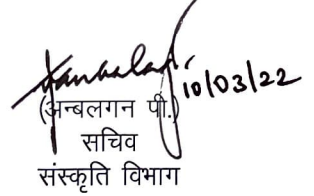 10/03/22
(अन्बलगन पी.)
सचिव
संस्कृति विभाग